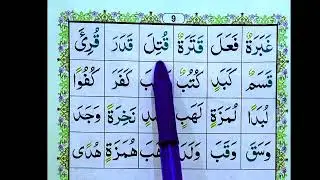 9
غَبَرَةٌ فَعَلَ قَتَرَةٌ قُتِلَ قَدَرَ قُرِئَ
قَسَمٌ كَبَدٍ كُتُبٌ كَفَرَ كُفُوًا
لُبَدًا لُمَزَةٍ لَهَبٍ نَخِرَةً وَجَدَ
وَسَقَ وَقَبَ وَلَدَ هُمَزَةٍ هُدًى